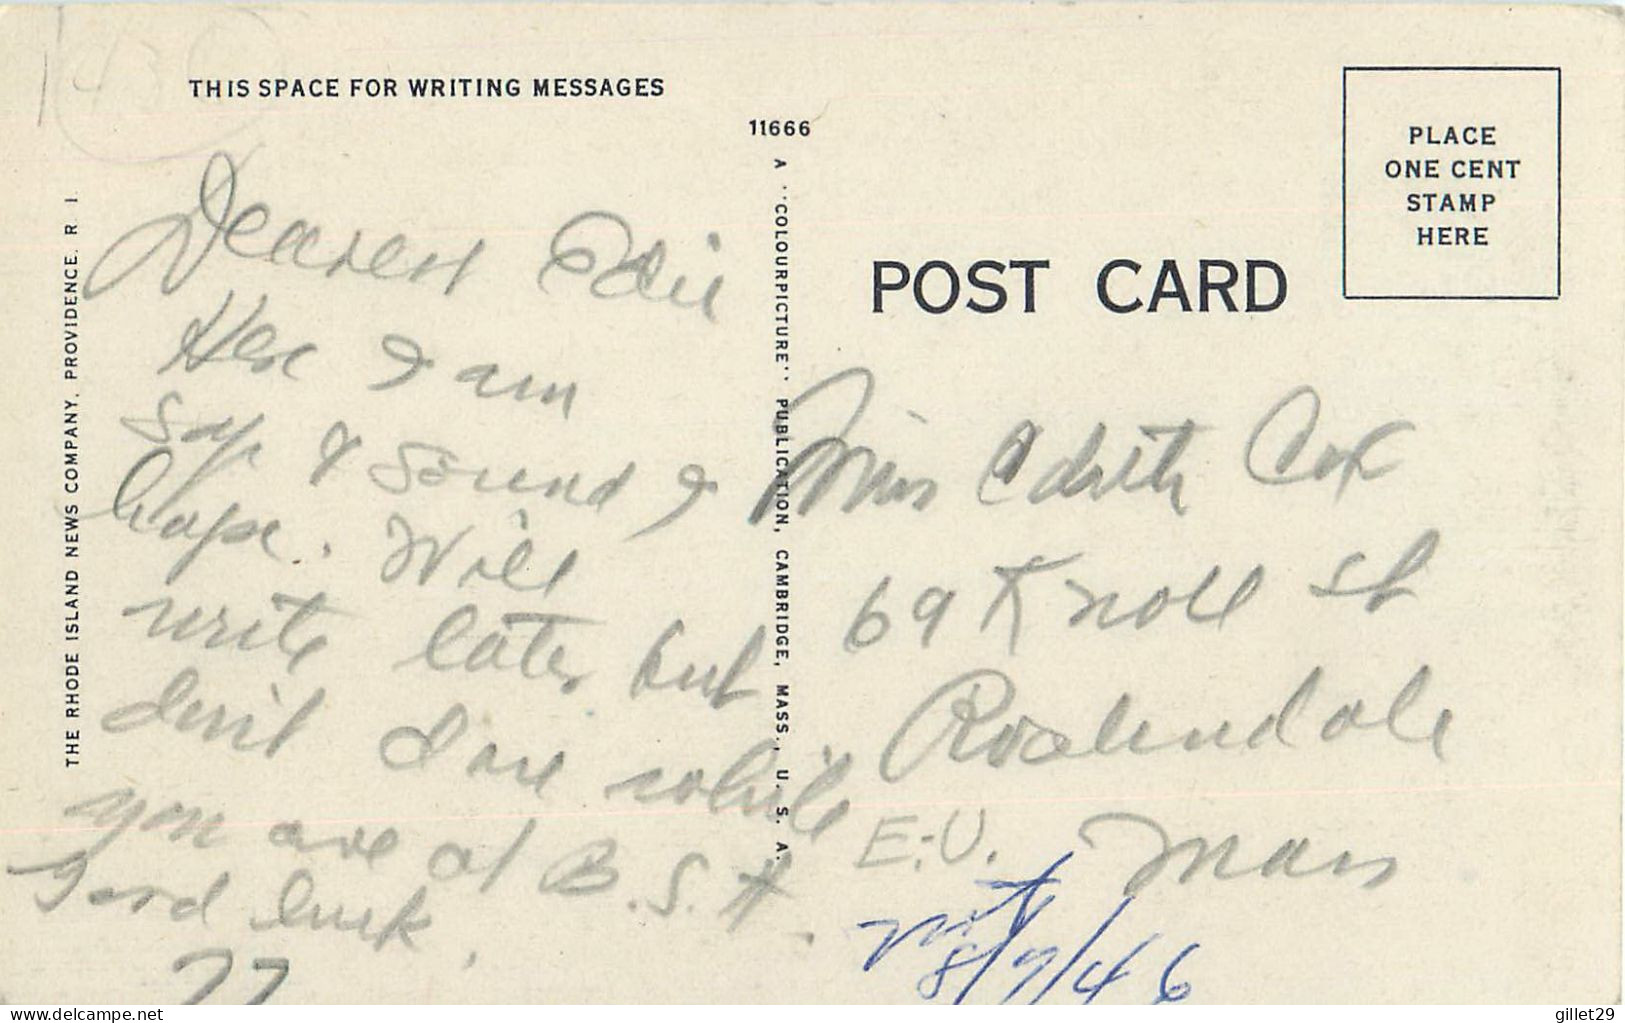 1430
THIS SPACE FOR WRITING MESSAGES
11666
THE RHODE ISLAND NEWS COMPANY, PROVIDENCE, R. I.
A "COLOURPICTURE" PUBLICATION, CAMBRIDGE, MASS., U. S. A.
PLACE
ONE CENT
STAMP
HERE
POST CARD
Dearest Edie
Here I am
Safe & Sound I
hope. Will
write later but
don't dare while
you are at B.S.H.
Good luck.
Miss Edith Cox
69 Knoll St
Roslindale
Mass
E.-U.
8/7/46
delcampe.net
gillet29